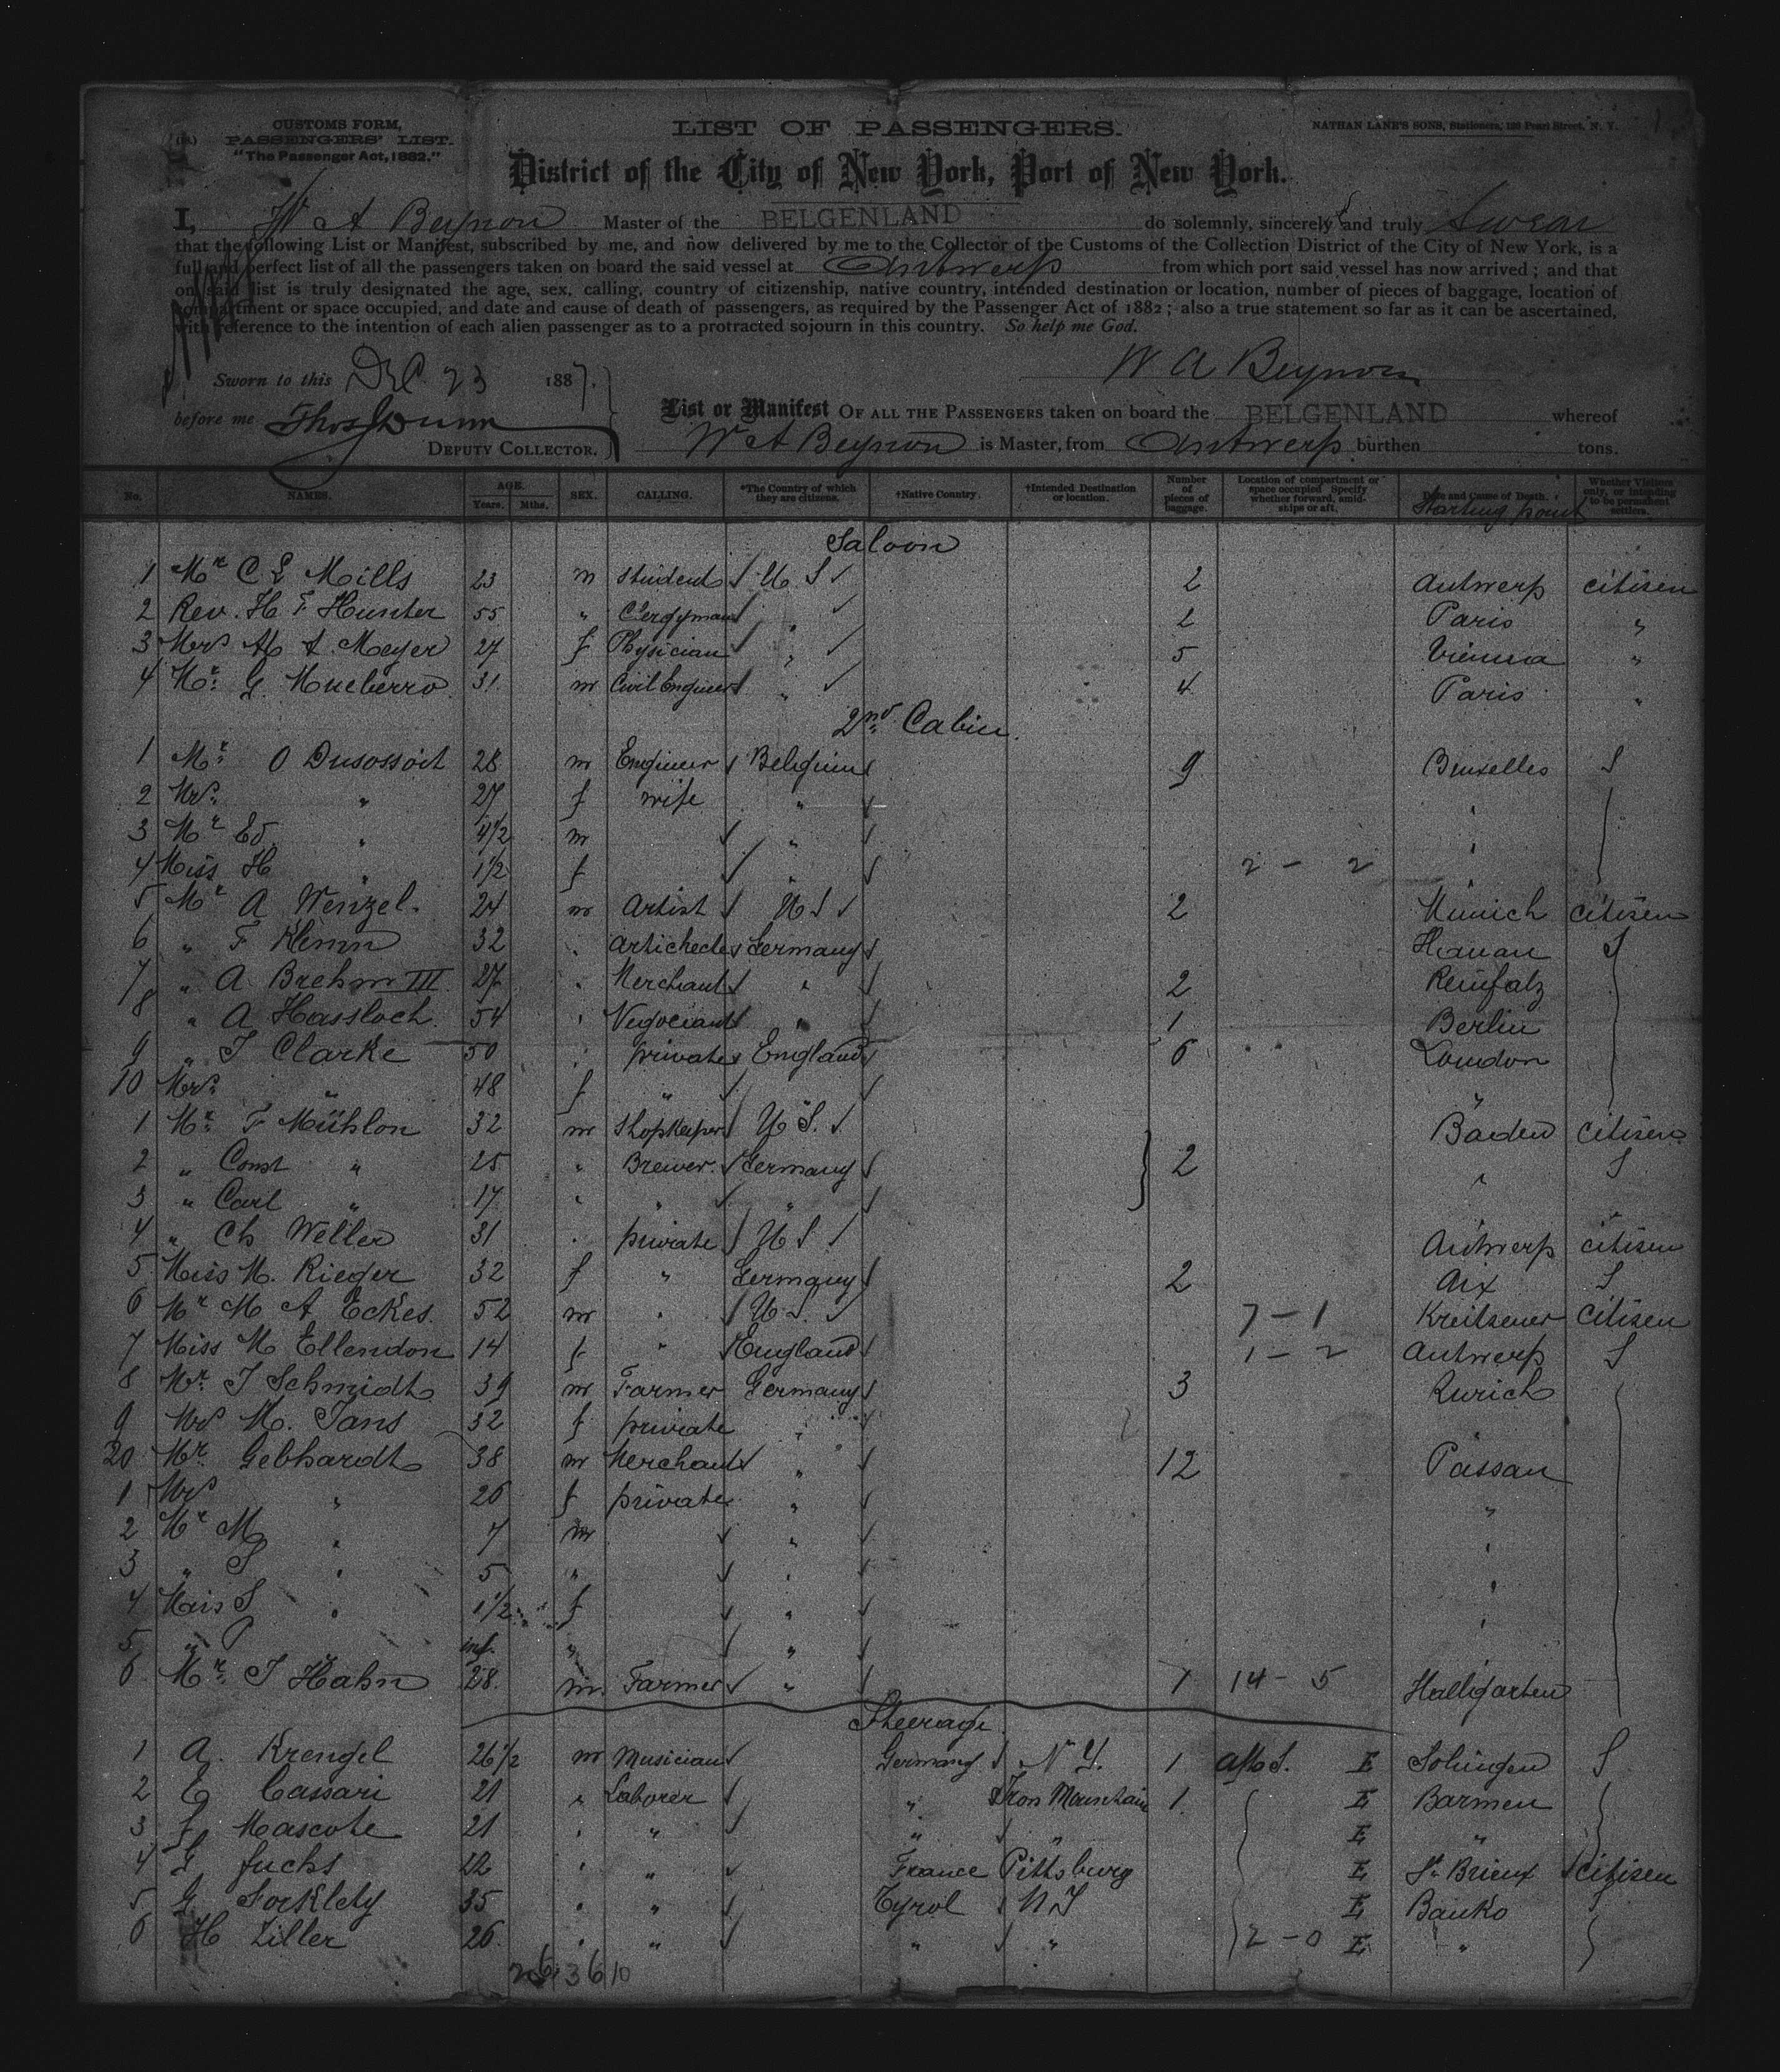 CUSTOMS FORM,
PASSENGERS' LIST.
"The Passenger Act, 1882."
LIST OF PASSENGERS.
NATHAN LANE'S SONS, Stationers, 138 Pearl Street, N. Y.
District of the City of New York, Port of New York.
I, W A Beynon Master of the BELGENLAND do solemnly, sincerely and truly Swear
that the following List or Manifest, subscribed by me, and now delivered by me to the Collector of the Customs of the Collection District of the City of New York, is a
full and perfect list of all the passengers taken on board the said vessel at Antwerp from which port said vessel has now arrived; and that
on said list is truly designated the age, sex, calling, country of citizenship, native country, intended destination or location, number of pieces of baggage, location of
compartment or space occupied, and date and cause of death of passengers, as required by the Passenger Act of 1882; also a true statement so far as it can be ascertained,
with reference to the intention of each alien passenger as to a protracted sojourn in this country. So help me God.
W A Beynon
Sworn to this Dec 23 1887.
before me Thos Dunn
DEPUTY COLLECTOR.
List or Manifest OF ALL THE PASSENGERS taken on board the BELGENLAND whereof
W A Beynon is Master, from Antwerp burthen tons.
No. NAMES. AGE. Years. Mths. SEX. CALLING. *The Country of which they are citizens. †Native Country. †Intended Destination or location. Number of pieces of baggage. Location of compartment or space occupied. Specify whether forward, amidships or aft. Date and Cause of Death. Starting point Whether Visitors only, or intending to be permanent settlers.
Saloon
1 Mr C L Mills 23 m student U S 2 Antwerp citisen
2 Rev. H F Hunter 55 " Clergyman " 2 Paris "
3 Mrs A. Meyer 27 f Physician " 5 Vienna "
4 Mr G. 31 m Civil Engineer " 4 Paris "
2nd Cabin.
1 Mr O Dusossoit 28 m Engineer Belgium 9 Bruxelles S
2 Mrs " 27 f wife " "
3 Mr Ed. " 4½ m " "
4 Miss H " 1½ f " 2 - 2 "
5 Mr A Wenzel 24 m Artist U S 2 Munich citisen
6 " F Klemm 32 " Artichect Germany Hanau S
7 " A Brehm III 27 " Merchant " 2
8 " A Hassloch 54 " Negociant " 1 Berlin
9 " J Clarke 50 " private England 6 London
10 Mrs " 48 f " " "
1 Mr F Mühlon 32 m Shopkeeper U S. Baden citisen
2 " Const " 25 " Brewer Germany 2 " S
3 " Carl " 17 " " " "
4 " Ch Weller 31 " private U S Antwerp citisen
5 Miss M. Rieger 32 f " Germany 2 Aix S
6 Mr M A Eckes 52 m " U S. 7 - 1 citisen
7 Miss M Ellendon 14 f " England 1 - 2 Antwerp S
8 Mr J Schmidt 39 m Farmer Germany 3
9 Mrs M. Jans 32 f private " "
20 Mr Gebhardt 38 m Merchant " 12 Passau
1 Mrs " 26 f private " "
2 Mr M " 7 m " "
3 " S " 5 " " "
4 Miss S " 1½ f " "
5 " P inf. " "
6 Mr J Hahn 28 m Farmer " 1 14 - 5 Hallgarten
Steerage
1 A. Krengel 26½ m Musician Germany N Y. 1 E Solingen S
2 E Cassari 21 " Laborer " Iron Mountain 1 E Barmen
3 f Mascote 21 " " " " E "
4 fuchs 22 " " France Pittsburg E St Brieux citisen
5 G 35 " " Tyrol N J E Banko
6 H Ziller 26 " " " " 2 - 0 E "
26 36 10